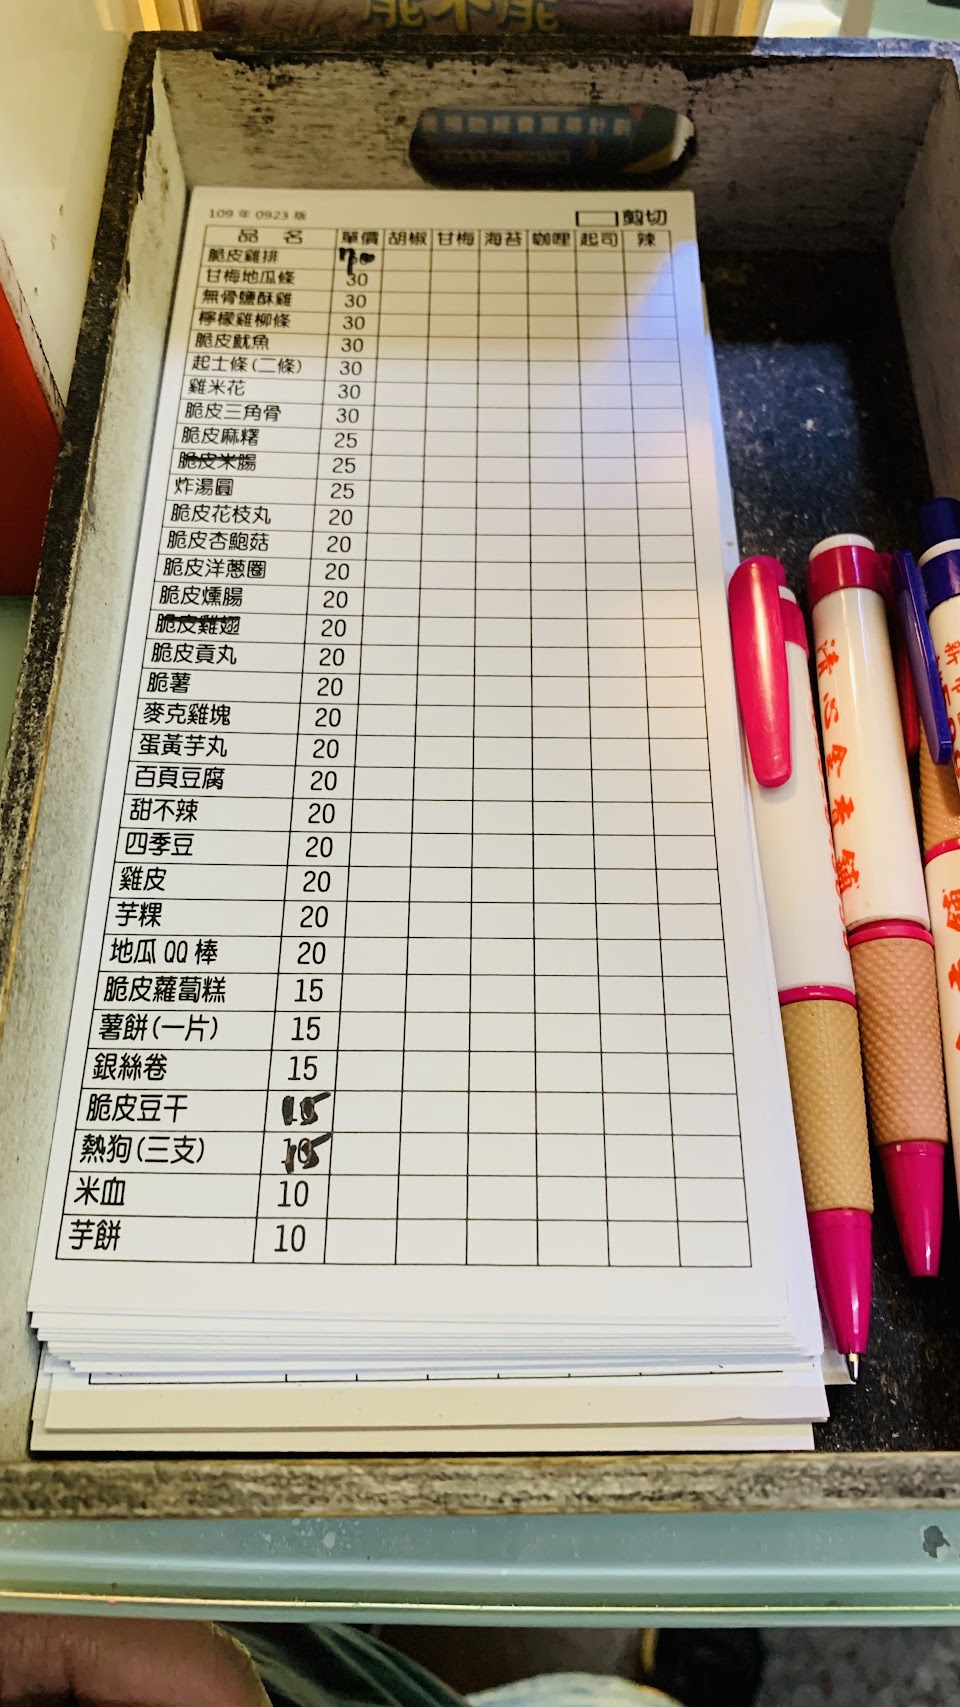 能不能
補助經費業專計劃
109 年 0923 版
剪切
品 名 單價 胡椒 甘梅 海苔 咖哩 起司 辣
脆皮雞排 70
甘梅地瓜條 30
無骨鹽酥雞 30
檸檬雞柳條 30
脆皮魷魚 30
起士條(二條) 30
雞米花 30
脆皮三角骨 30
脆皮麻糬 25
脆皮米腸 25
炸湯圓 25
脆皮花枝丸 20
脆皮杏鮑菇 20
脆皮洋蔥圈 20
脆皮燻腸 20
脆皮雞翅 20
脆皮貢丸 20
脆薯 20
麥克雞塊 20
蛋黃芋丸 20
百頁豆腐 20
甜不辣 20
四季豆 20
雞皮 20
芋粿 20
地瓜 QQ 棒 20
脆皮蘿蔔糕 15
薯餅(一片) 15
銀絲卷 15
脆皮豆干 15
熱狗(三支) 15
米血 10
芋餅 10
清心金香鋪